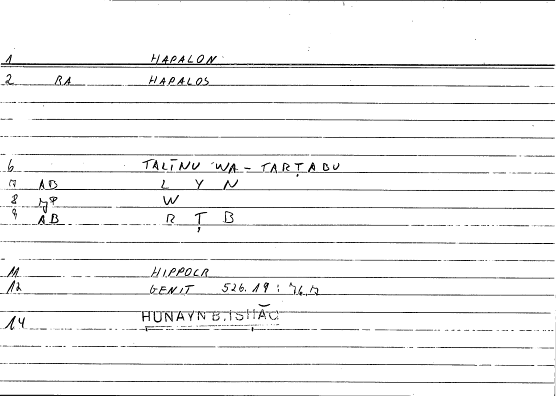 1 HAPALON
2 RA HAPALOS
6 TALĪNU WA - TARṬABU
7 AB L Y N
8 W
9 AB R Ṭ B
11 HIPPOCR
12 GENIT 526.19 :
14 HUNAYN B. ISHĀQ